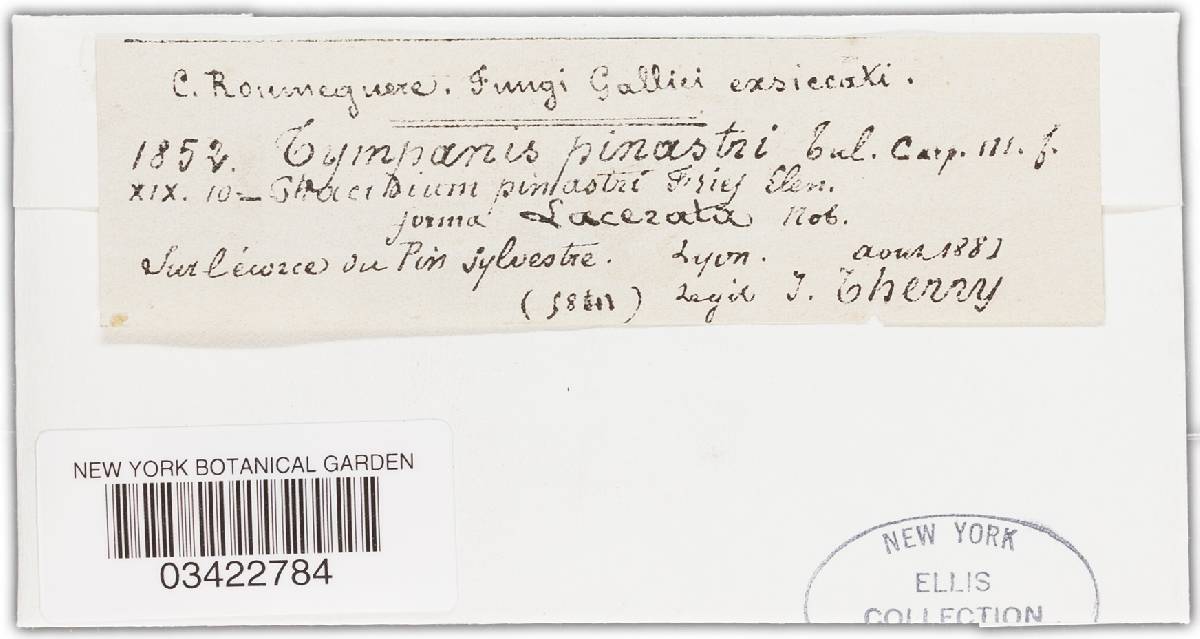 C. Roumeguere. Fungi Gallici exsiccati.
1852. Tympanis pinastri Tul. Carp. III. f.
XIX. 10 — Phacidium pinastri Fries Elen.
forma Lacerata Nob.
Sur l'écorce du Pin sylvestre. Lyon. aout 1881
Legit J. Therry
NEW YORK BOTANICAL GARDEN
03422784
NEW YORK
ELLIS
COLLECTION